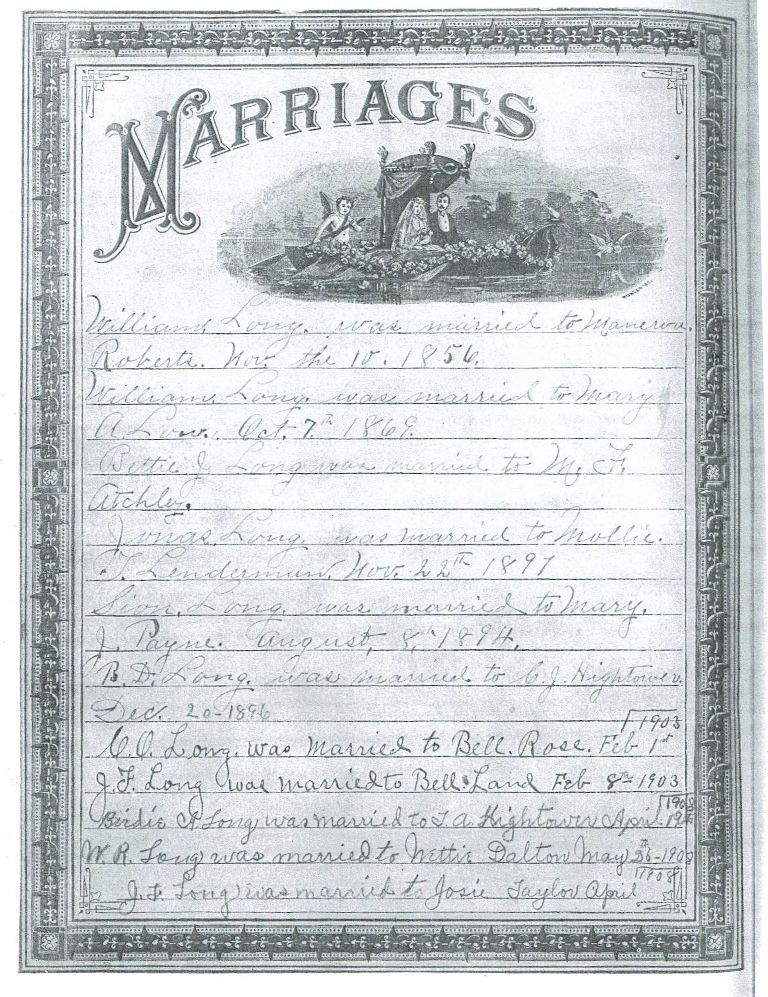 MARRIAGES
William. Long. was married to Manerva.
Roberts. Nov. the 10. 1856.
William. Long. was married to Mary
A Low. Oct. 7th 1869.
Bettie J Long was married to M. F.
Atchley.
Jonas. Long. was married to Mollie.
T. Lenderman. Nov. 22th 1891
Sion. Long. was married to Mary.
J. Payne. August, 8, 1894.
B. D. Long. was married to C. J. Hightower.
Dec. 20-1896
1903
C. O. Long. was Married to Bell. Rose. Feb 1st
J. F. Long was married to Bell. Land Feb 8th 1903
1908
Birdie A Long was married to T. A. Hightower April 19th
W. R. Long was married to Nettie Dalton May 26-1908
1908
J. F. Long was married to Josie Taylor April